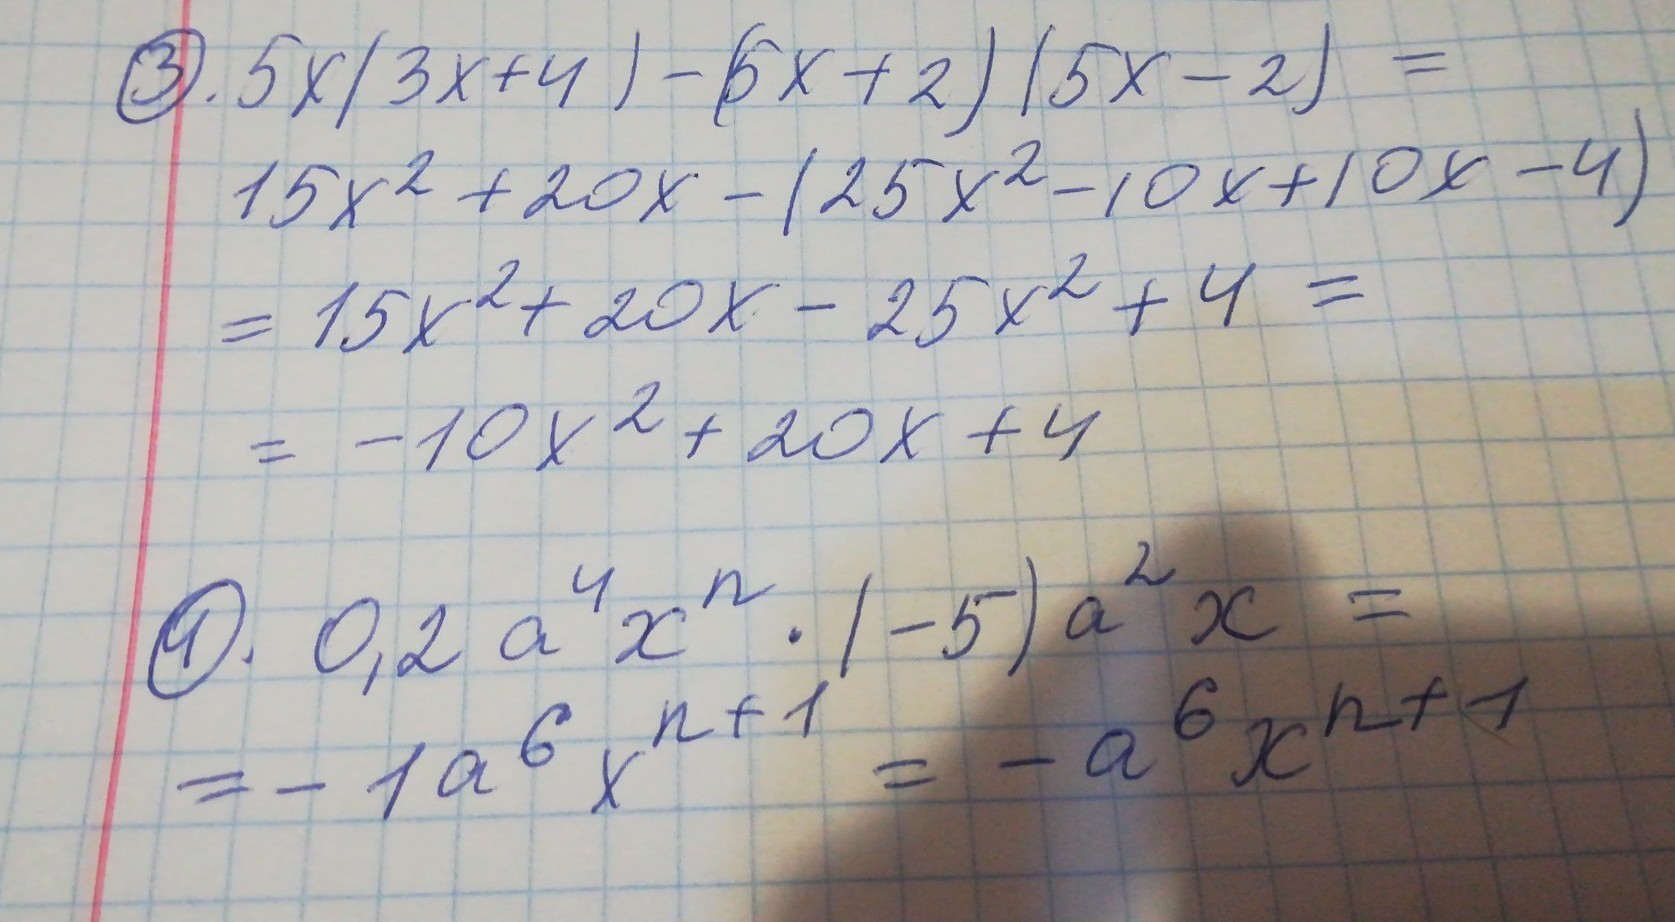 ③. 5x(3x+4)-(5x+2)(5x-2)=
15x²+20x-(25x²-10x+10x-4)
=15x²+20x-25x²+4=
=-10x²+20x+4
④. 0,2a⁴xⁿ·(-5)a²x=
=-1a⁶xⁿ⁺¹=-a⁶xⁿ⁺¹